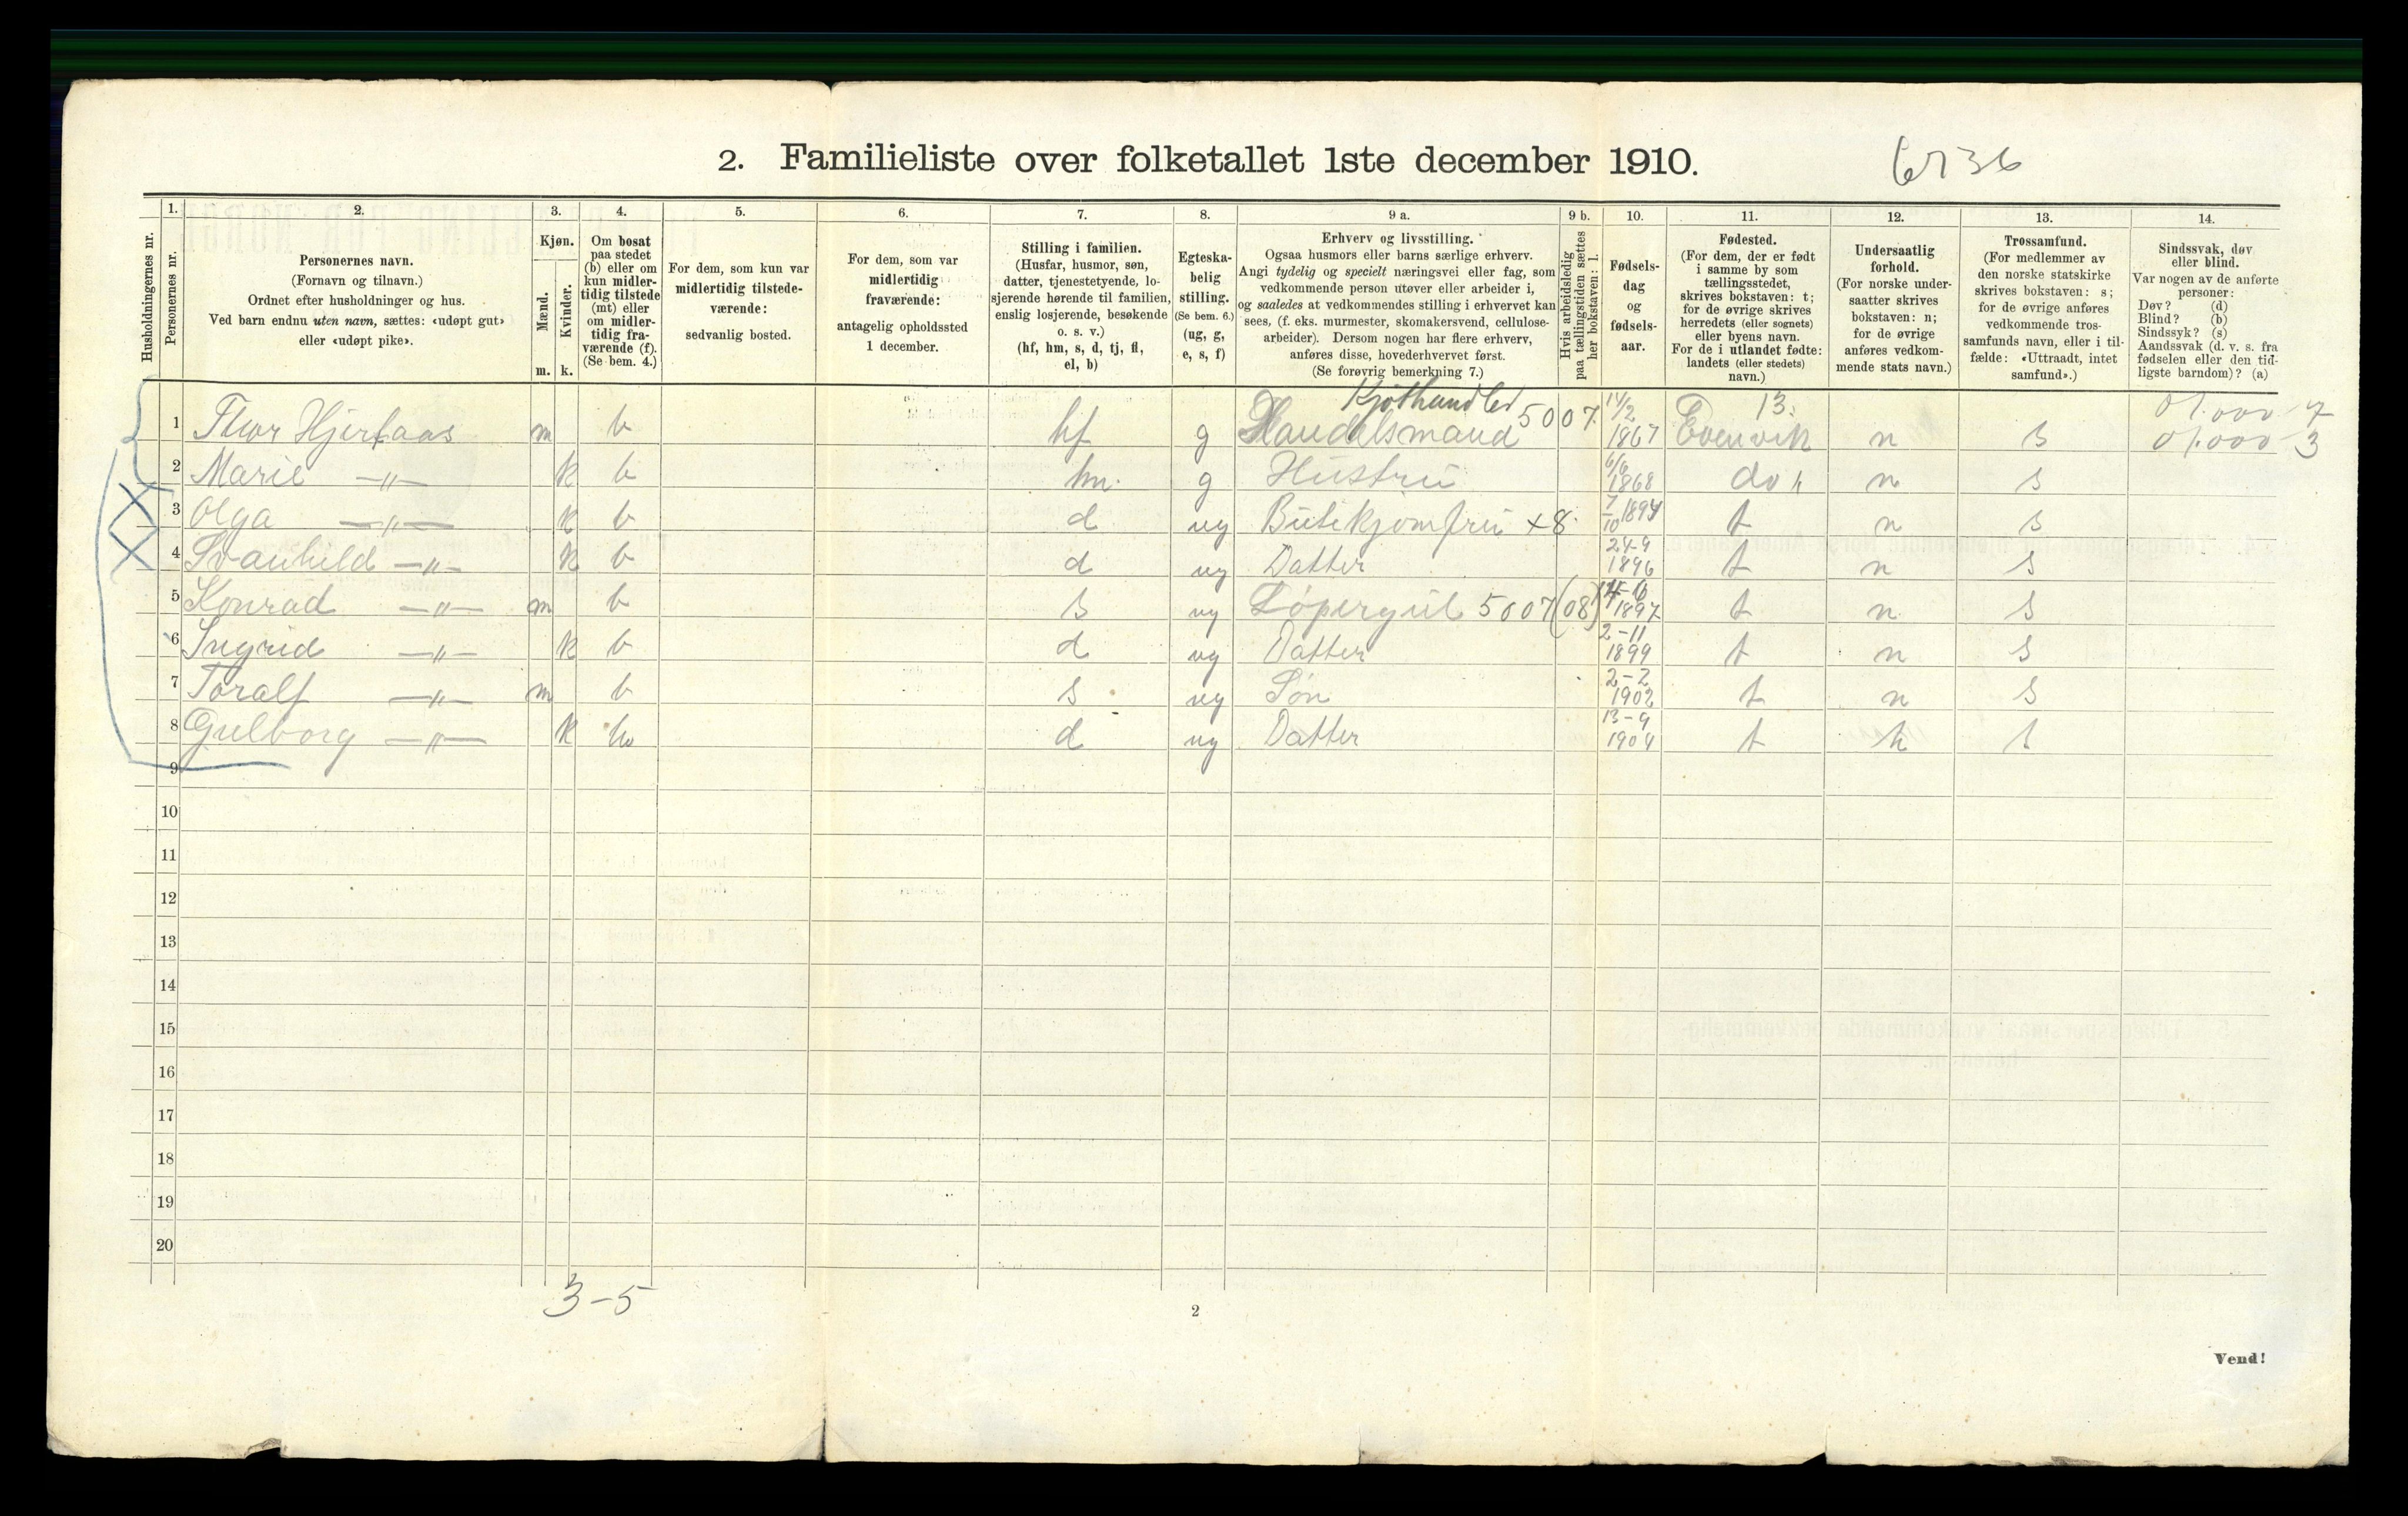 2. Familieliste over folketallet 1ste december 1910. 6736
Husholdningernes nr.
1.
Personernes nr.
2.
Personernes navn.
(Fornavn og tilnavn.)
Ordnet efter husholdninger og hus.
Ved barn endnu uten navn, sættes: «udøpt gut»
eller «udøpt pike».
3.
Kjøn.
Mænd.
Kvinder.
m. k.
4.
Om bosat
paa stedet
(b) eller om
kun midler-
tidig tilstede
(mt) eller
om midler-
tidig fra-
værende (f).
(Se bem. 4.)
5.
For dem, som kun var
midlertidig tilstede-
værende:
sedvanlig bosted.
6.
For dem, som var
midlertidig
fraværende:
antagelig opholdssted
1 december.
7.
Stilling i familien.
(Husfar, husmor, søn,
datter, tjenestetyende, lo-
sjerende hørende til familien,
enslig losjerende, besøkende
o. s. v.)
(hf, hm, s, d, tj, fl,
el, b)
8.
Egteska-
belig
stilling.
(Se bem. 6.)
(ug, g,
e, s, f)
9 a.
Erhverv og livsstilling.
Ogsaa husmors eller barns særlige erhverv.
Angi tydelig og specielt næringsvei eller fag, som
vedkommende person utøver eller arbeider i,
og saaledes at vedkommendes stilling i erhvervet kan
sees, (f. eks. murmester, skomakersvend, cellulose-
arbeider). Dersom nogen har flere erhverv,
anføres disse, hovederhvervet først.
(Se forøvrig bemerkning 7.)
9 b.
Hvis arbeidsledig
paa tællingstiden sættes
her bokstaven: l.
10.
Fødsels-
dag
og
fødsels-
aar.
11.
Fødested.
(For dem, der er født
i samme by som
tællingsstedet,
skrives bokstaven: t;
for de øvrige skrives
herredets (eller sognets)
eller byens navn.
For de i utlandet fødte:
landets (eller stedets)
navn.)
12.
Undersaatlig
forhold.
(For norske under-
saatter skrives
bokstaven: n;
for de øvrige
anføres vedkom-
mende stats navn.)
13.
Trossamfund.
(For medlemmer av
den norske statskirke
skrives bokstaven: s;
for de øvrige anføres
vedkommende tros-
samfunds navn, eller i til-
fælde: «Uttraadt, intet
samfund».)
14.
Sindssvak, døv
eller blind.
Var nogen av de anførte
personer:
Døv? (d)
Blind? (b)
Sindssyk? (s)
Aandssvak (d. v. s. fra
fødselen eller den tid-
ligste barndom)? (a)
Kjøthandler 14/2 13. 01.000-7
1 Thor Hjertaas m b hf g Handelsmand 5007. 1867 Evenvik n s 01.000-3
6/6
2 Marie —"— k b hm. g Hustru 1868 do " n s
3 Olga —"— k b d ug Butikjomfru +8 7/10 1894 t n s
24-9
4 Svanhild —"— k b d ug Datter 1896 t n s
5 Konrad —"— m b s ug Løpergut 5007(08) 1897 t n s
2-11
6 Ingrid —"— k b d ug Datter 1899 t n s
2-2
7 Toralf —"— m b s ug Søn 1902 t n s
13-9
8 Gulborg —"— k b d ug Datter 1904 t n s
9
10
11
12
13
14
15
16
17
18
19
20
3-5
2
Vend!